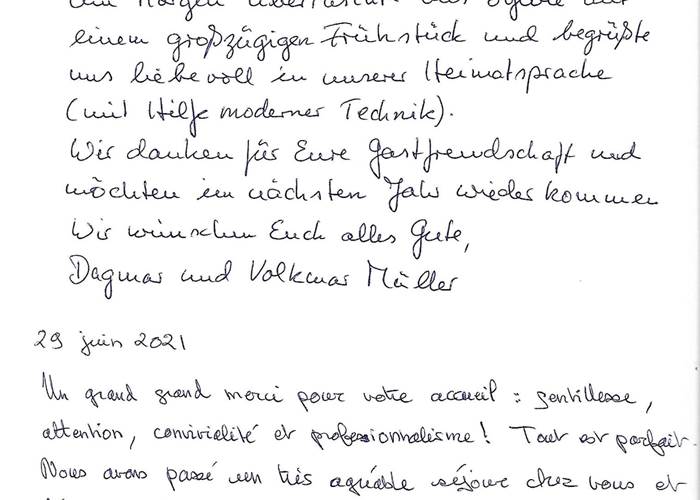 am Morgen überraschte uns Sylvie mit
einem großzügigen Frühstück und begrüßte
uns liebevoll in unserer Heimatsprache
(mit Hilfe moderner Technik).
Wir danken für Eure Gastfreundschaft und
möchten im nächsten Jahr wieder kommen
Wir wünschen Euch alles Gute,
Dagmar und Volkmar Müller
29 juin 2021
Un grand grand merci pour votre accueil : gentillesse,
attention, convivialité et professionnalisme ! Tout est parfait.
Nous avons passé un très agréable séjour chez vous et